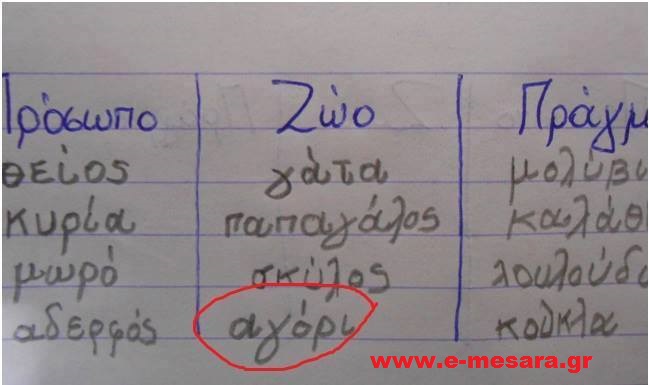 Πρόσωπο Ζώο Πράγμ
θείος γάτα μολύβι
κυρία παπαγάλος καλάθι
μωρό σκύλος λουλούδι
αδερφός αγόρι κούκλα
www.e-mesara.gr